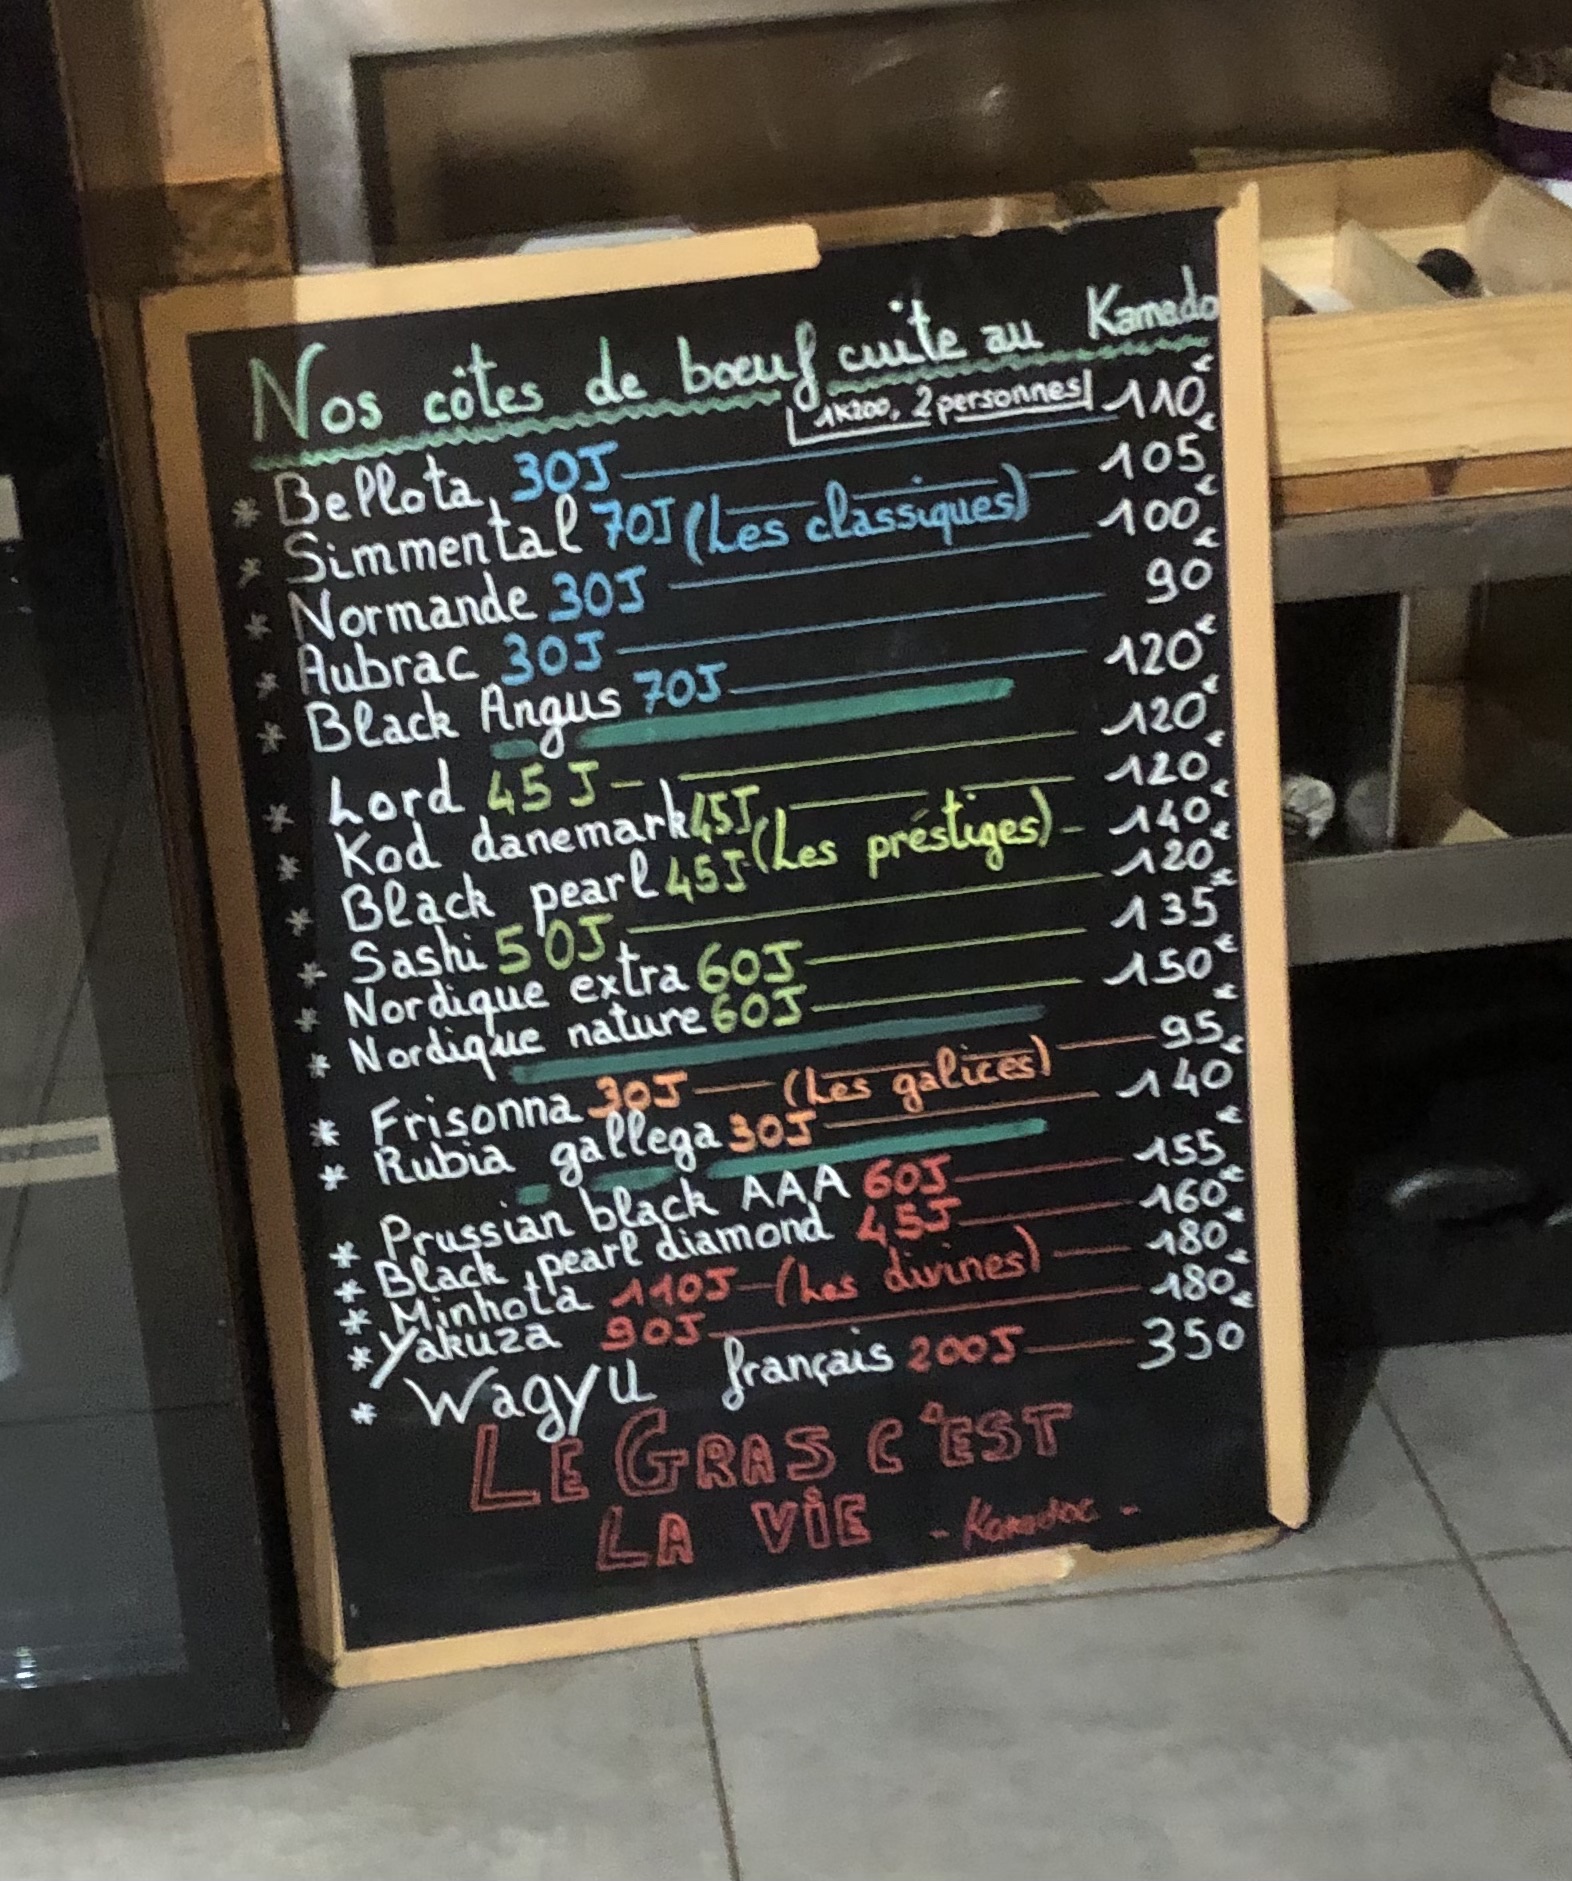 Nos côtes de bœuf cuite au Kamado
1K200, 2 personnes
* Bellota 30J 110€
* Simmental 70J (Les classiques) 105€
* Normande 30J 100€
* Aubrac 30J 90€
* Black Angus 70J 120€
* Lord 45J 120€
* Kod danemark 45J 120€
* Black pearl 45J (Les préstiges) 140€
* Sashi 50J 120€
* Nordique extra 60J 135€
* Nordique nature 60J 150€
* Frisonna 30J (Les galices) 95€
* Rubia gallega 30J 140€
* Prussian black AAA 60J 155€
* Black pearl diamond 45J 160€
* Minhota 110J (Les divines) 180€
* Yakuza 90J 180€
* Wagyu français 200J 350€
LE GRAS C'EST
LA VIE